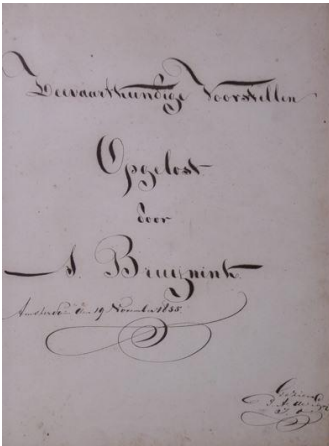 Zeevaartkundige Voorstellen
Opgelost
door
A. Bruijnink.
Amsterdam den 19 November 1855
Gezien